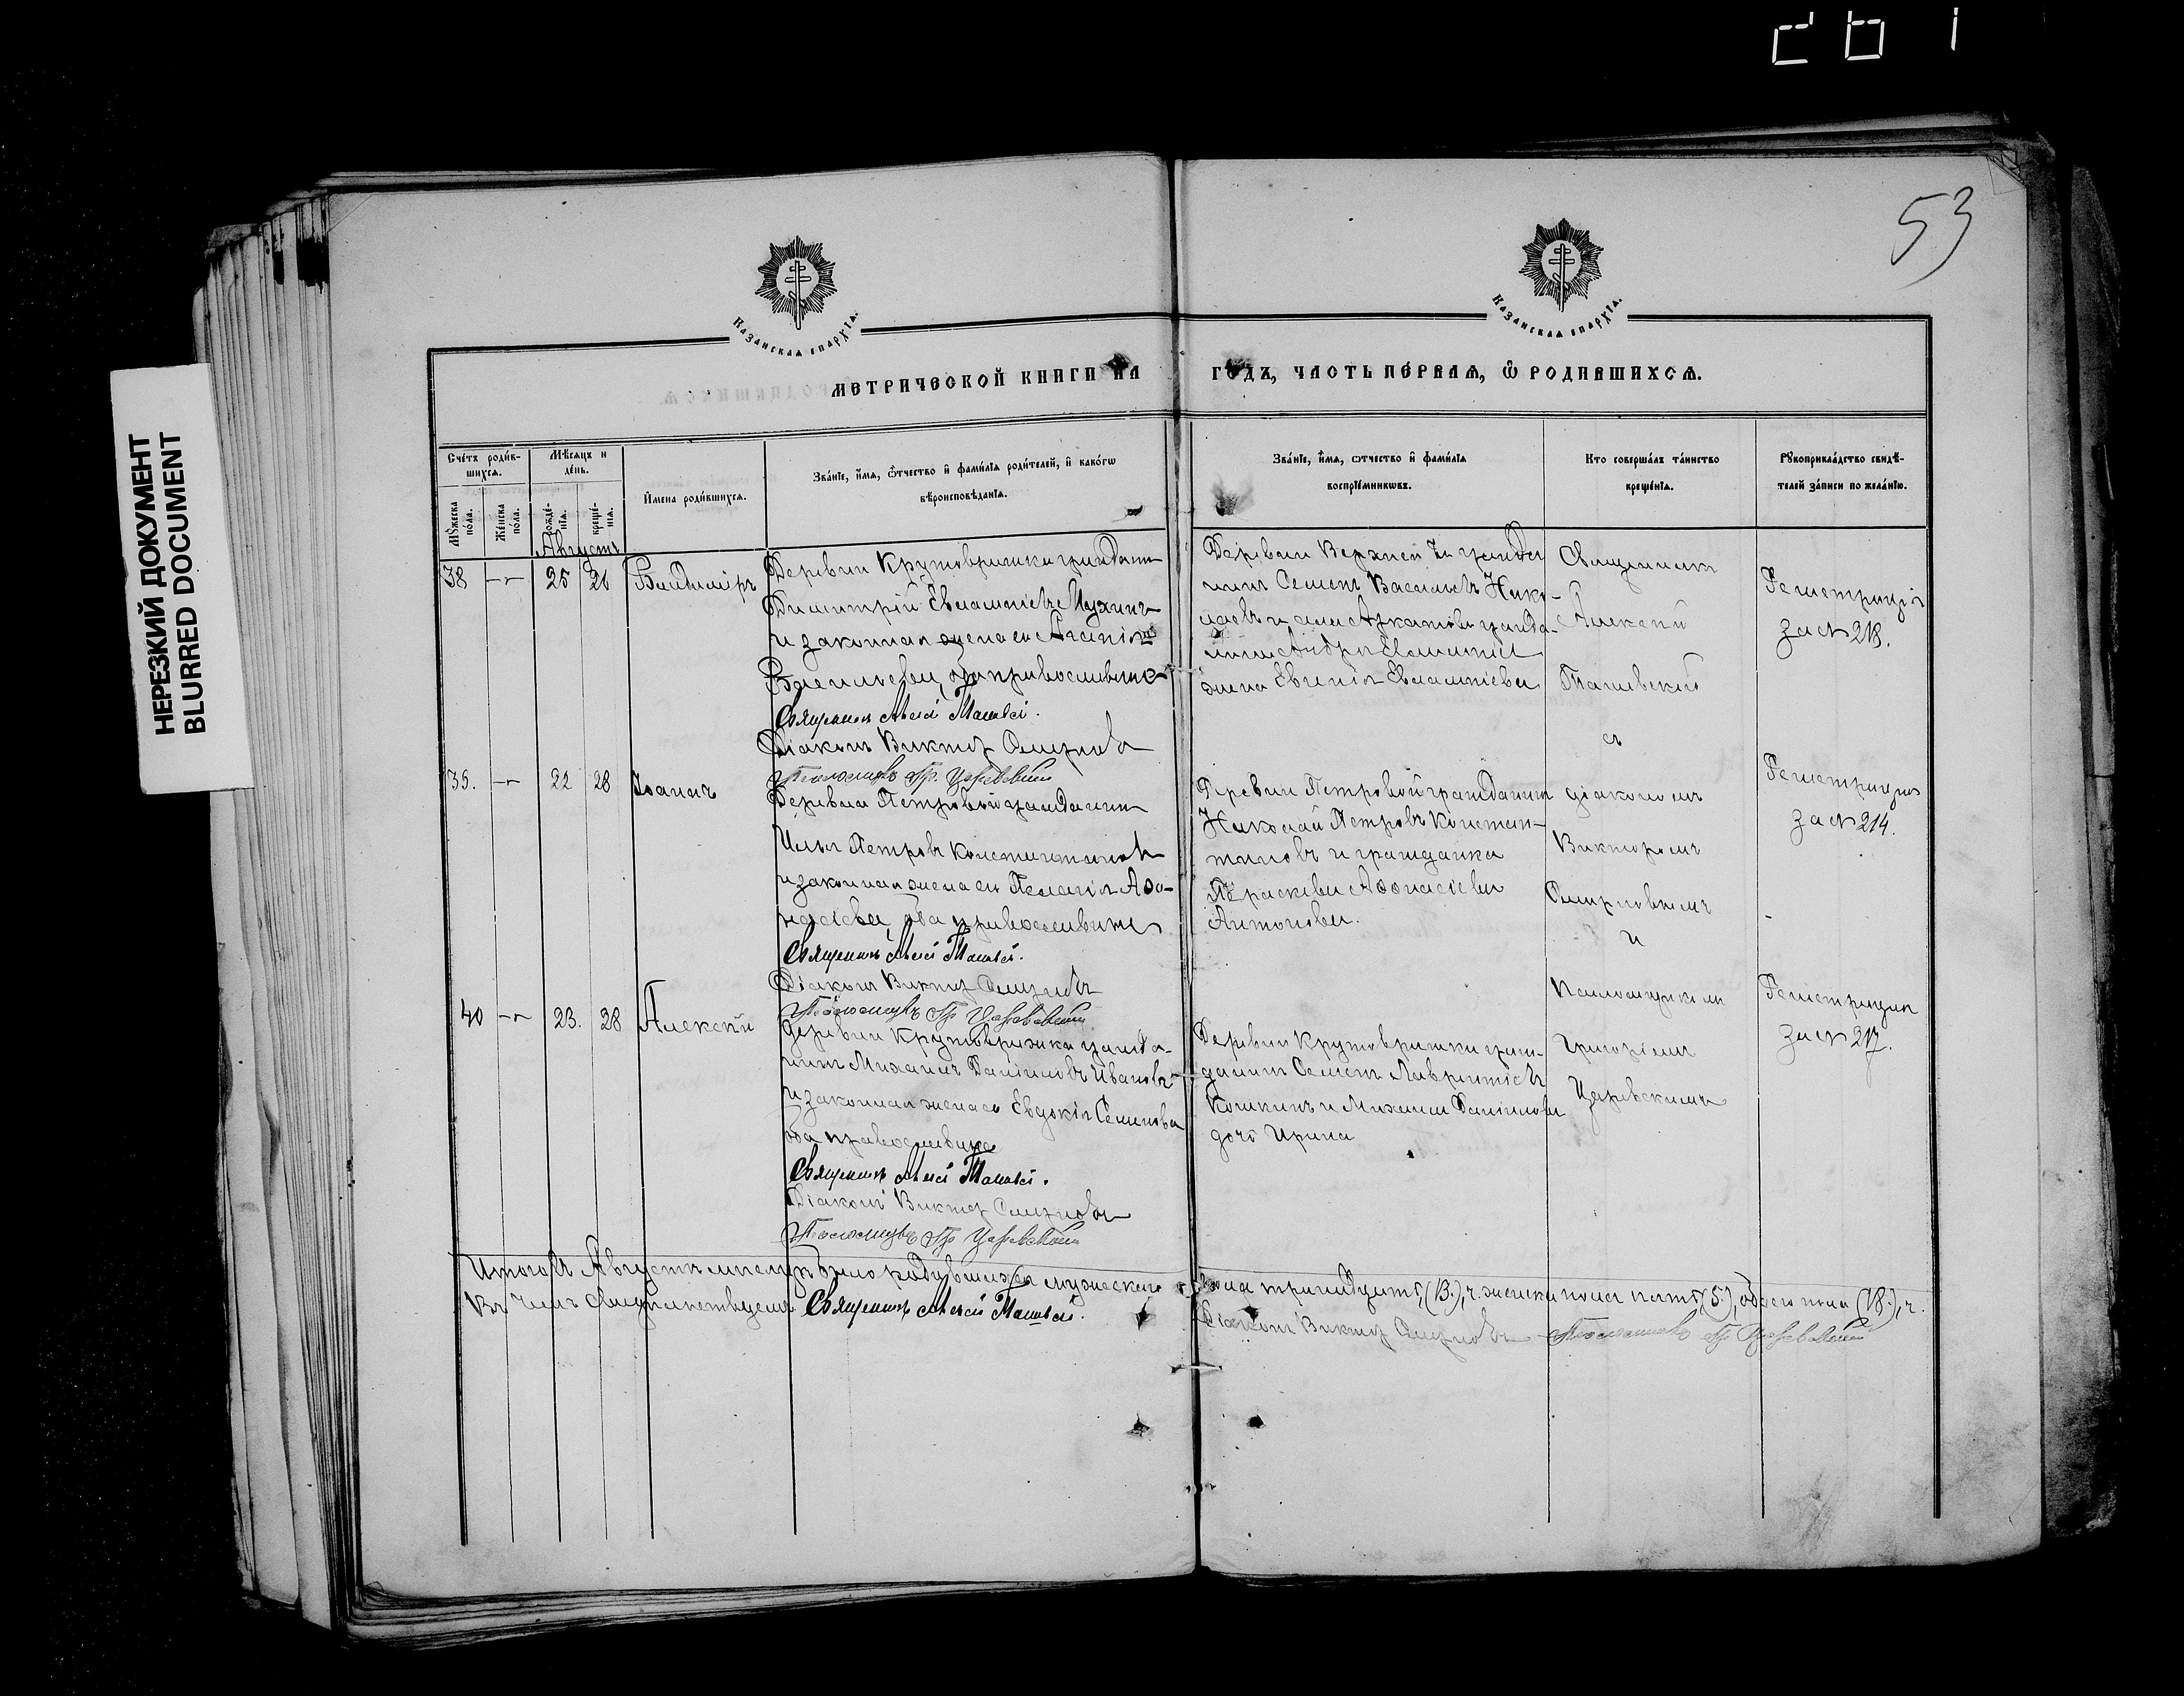 53
НЕРЕЗКИЙ ДОКУМЕНТ
BLURRED DOCUMENT
Казанская епархїа.
Казанская епархїа.
МЕТРИЧЕСКОЙ КНИГИ НА ГОДЪ, ЧАСТЬ ПЕРВАЯ, Ѡ РОДИВШИХСЯ.
Счетъ родив-
шихся.
Мѣсяцъ и
день.
Мꙋжеска
пола.
Женска
пола.
рожде-
нїѧ.
креще-
нїѧ.
Имена родившихся.
Званїе, имя, ѿчество и фамилїя родителей, и какогѡ
вѣроисповѣданїя.
Званїе, имя, ѿчество и фамилїя
воспрїемникѡвъ.
Кто совершалъ таинство
крещенїя.
Рꙋкоприкладство свидѣ-
телей записи по желанїю.
Августъ
38
25
26
Владиміръ
Деревни Крутовражки гражданин
Димитрій Евлампіевъ Мухинъ
и законная жена его
Васильева, оба православные
Священникъ Алексій
Діаконъ Виктор Смирнов
Псаломщикъ Гр. Царевскій
Деревни Верхней
нинъ Семенъ Васильевъ Нико-
лаевъ и
жена Евгенія Евлампіева
Священникъ
Алексій
съ
Регистрація
за № 218.
39.
22
28
Іоаннъ
Деревни Петровой гражданин
Илья Петровъ Константиновъ
и законная жена его Пелагія Аѳа-
насіева, оба православные
Священникъ Алексій
Діаконъ Виктор Смирновъ
Псаломщикъ Гр. Царевскій
Деревни Петровой гражданин
Николай Петровъ Констан-
тиновъ и гражданка
Параскева Аѳонасіева
Антонова.
діакономъ
Викторомъ
Смирновымъ
и
Регистрація
за № 214.
40
23.
28
Алексій
Деревни Крутовражки гражда-
нинъ Михаилъ Даніиловъ Ивановъ
и законная жена его Евдокія Семенова
оба православные
Священникъ Алексій
Діаконъ Виктор Смирновъ
Псаломщикъ Гр. Царевскій
Деревни Крутовражки граж-
данинъ Семенъ Лаврентіевъ
Кошкинъ и Михаила Даніилова
дочь Ирина
Псаломщикомъ
Григоріемъ
Царевскимъ
Регистрація
за № 217.
Итого въ Августѣ мѣсяцѣ было родившихся мужескаго пола тринадцать (13), женска пола пять (5), обоего пола (18),
Въ чемъ свидѣтельствуемъ Священникъ Алексій
Діаконъ Виктор Смирновъ Псаломщикъ Гр. Царевскій